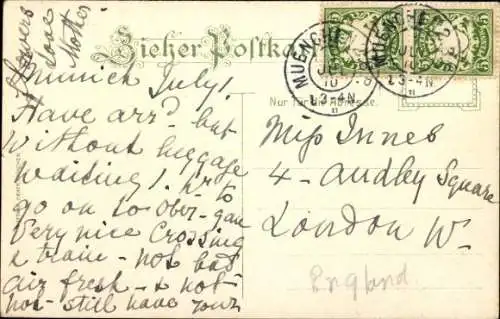 flowers
Love
Mother
Zieher Postkarte
MUENCHEN
MUENCHEN
3-4 N.
3-4 N.
II
II
Nur für die Adresse.
Munich July 1.
Have arrd but
without luggage
waiting 1. hr to
go on to Ober-gau
Very nice Crossing
& train - not bad
air fresh - & not
hot - still have your
Miss Innes
4 - Audley Square
London W.
England